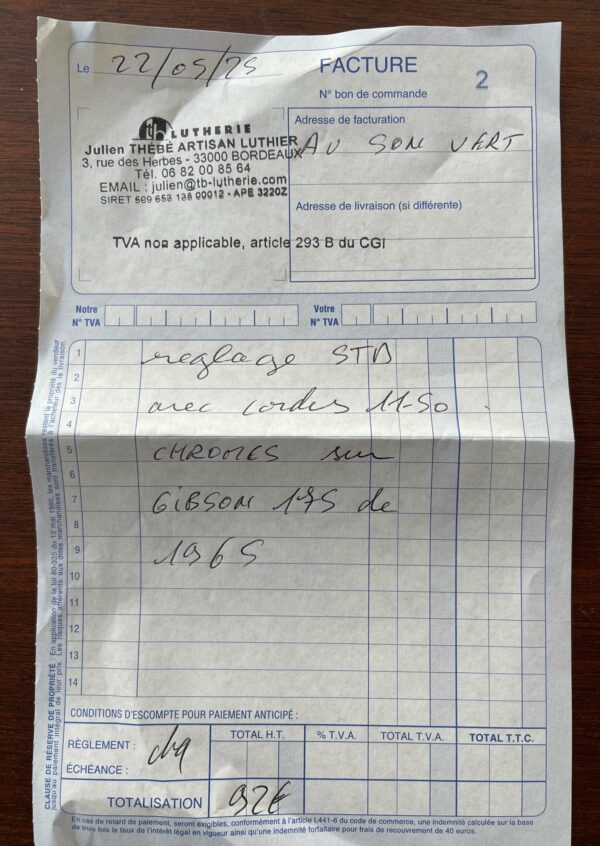 Le 22/05/25
FACTURE
2
N° bon de commande
tb LUTHERIE
Julien THÉBÉ ARTISAN LUTHIER
3, rue des Herbes - 33000 BORDEAUX
Tél. 06 82 00 85 64
EMAIL : julien@tb-lutherie.com
SIRET 509 653 136 00012 - APE 3220Z
TVA non applicable, article 293 B du CGI
Adresse de facturation
AU SON VERT
Adresse de livraison (si différente)
Notre
N° TVA
Votre
N° TVA
1 reglage STD
2
3 avec cordes 11-50
4
5 CHROMES sur
6
7 GIBSON 175 de
8
9 1965
10
11
12
13
14
CONDITIONS D'ESCOMPTE POUR PAIEMENT ANTICIPÉ :
RÈGLEMENT : chq
ÉCHÉANCE :
TOTAL H.T.
% T.V.A.
TOTAL T.V.A.
TOTAL T.T.C.
TOTALISATION 92€
En cas de retard de paiement, seront exigibles, conformément à l'article L441-6 du code de commerce, une indemnité calculée sur la base
de trois fois le taux de l'intérêt légal en vigueur ainsi qu'une indemnité forfaitaire pour frais de recouvrement de 40 euros.
CLAUSE DE RÉSERVE DE PROPRIÉTÉ : En application de la loi 80-335 du 12 mai 1980, les marchandises restent la propriété du vendeur
jusqu'au paiement intégral de leur prix. Les risques afférents aux dites marchandises sont transférés à l'acheteur dès la livraison.